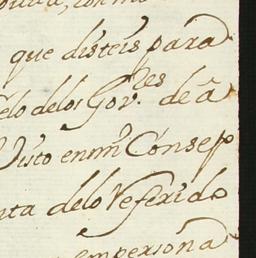 que disteis para
elo delos Gov.res de a
Visto en mi Consep
ta delo Referido
en persona